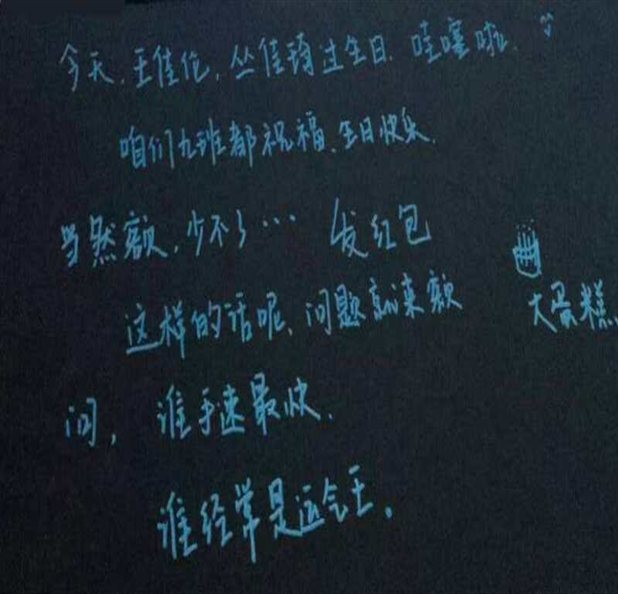 今天,王佳伦,丛佳琦过生日.哇塞啦.
咱们九班都祝福.生日快乐.
当然额,少不了… 发红包
这样的话呢,问题就来额
大蛋糕
问,谁手速最快.
谁经常是运气王.